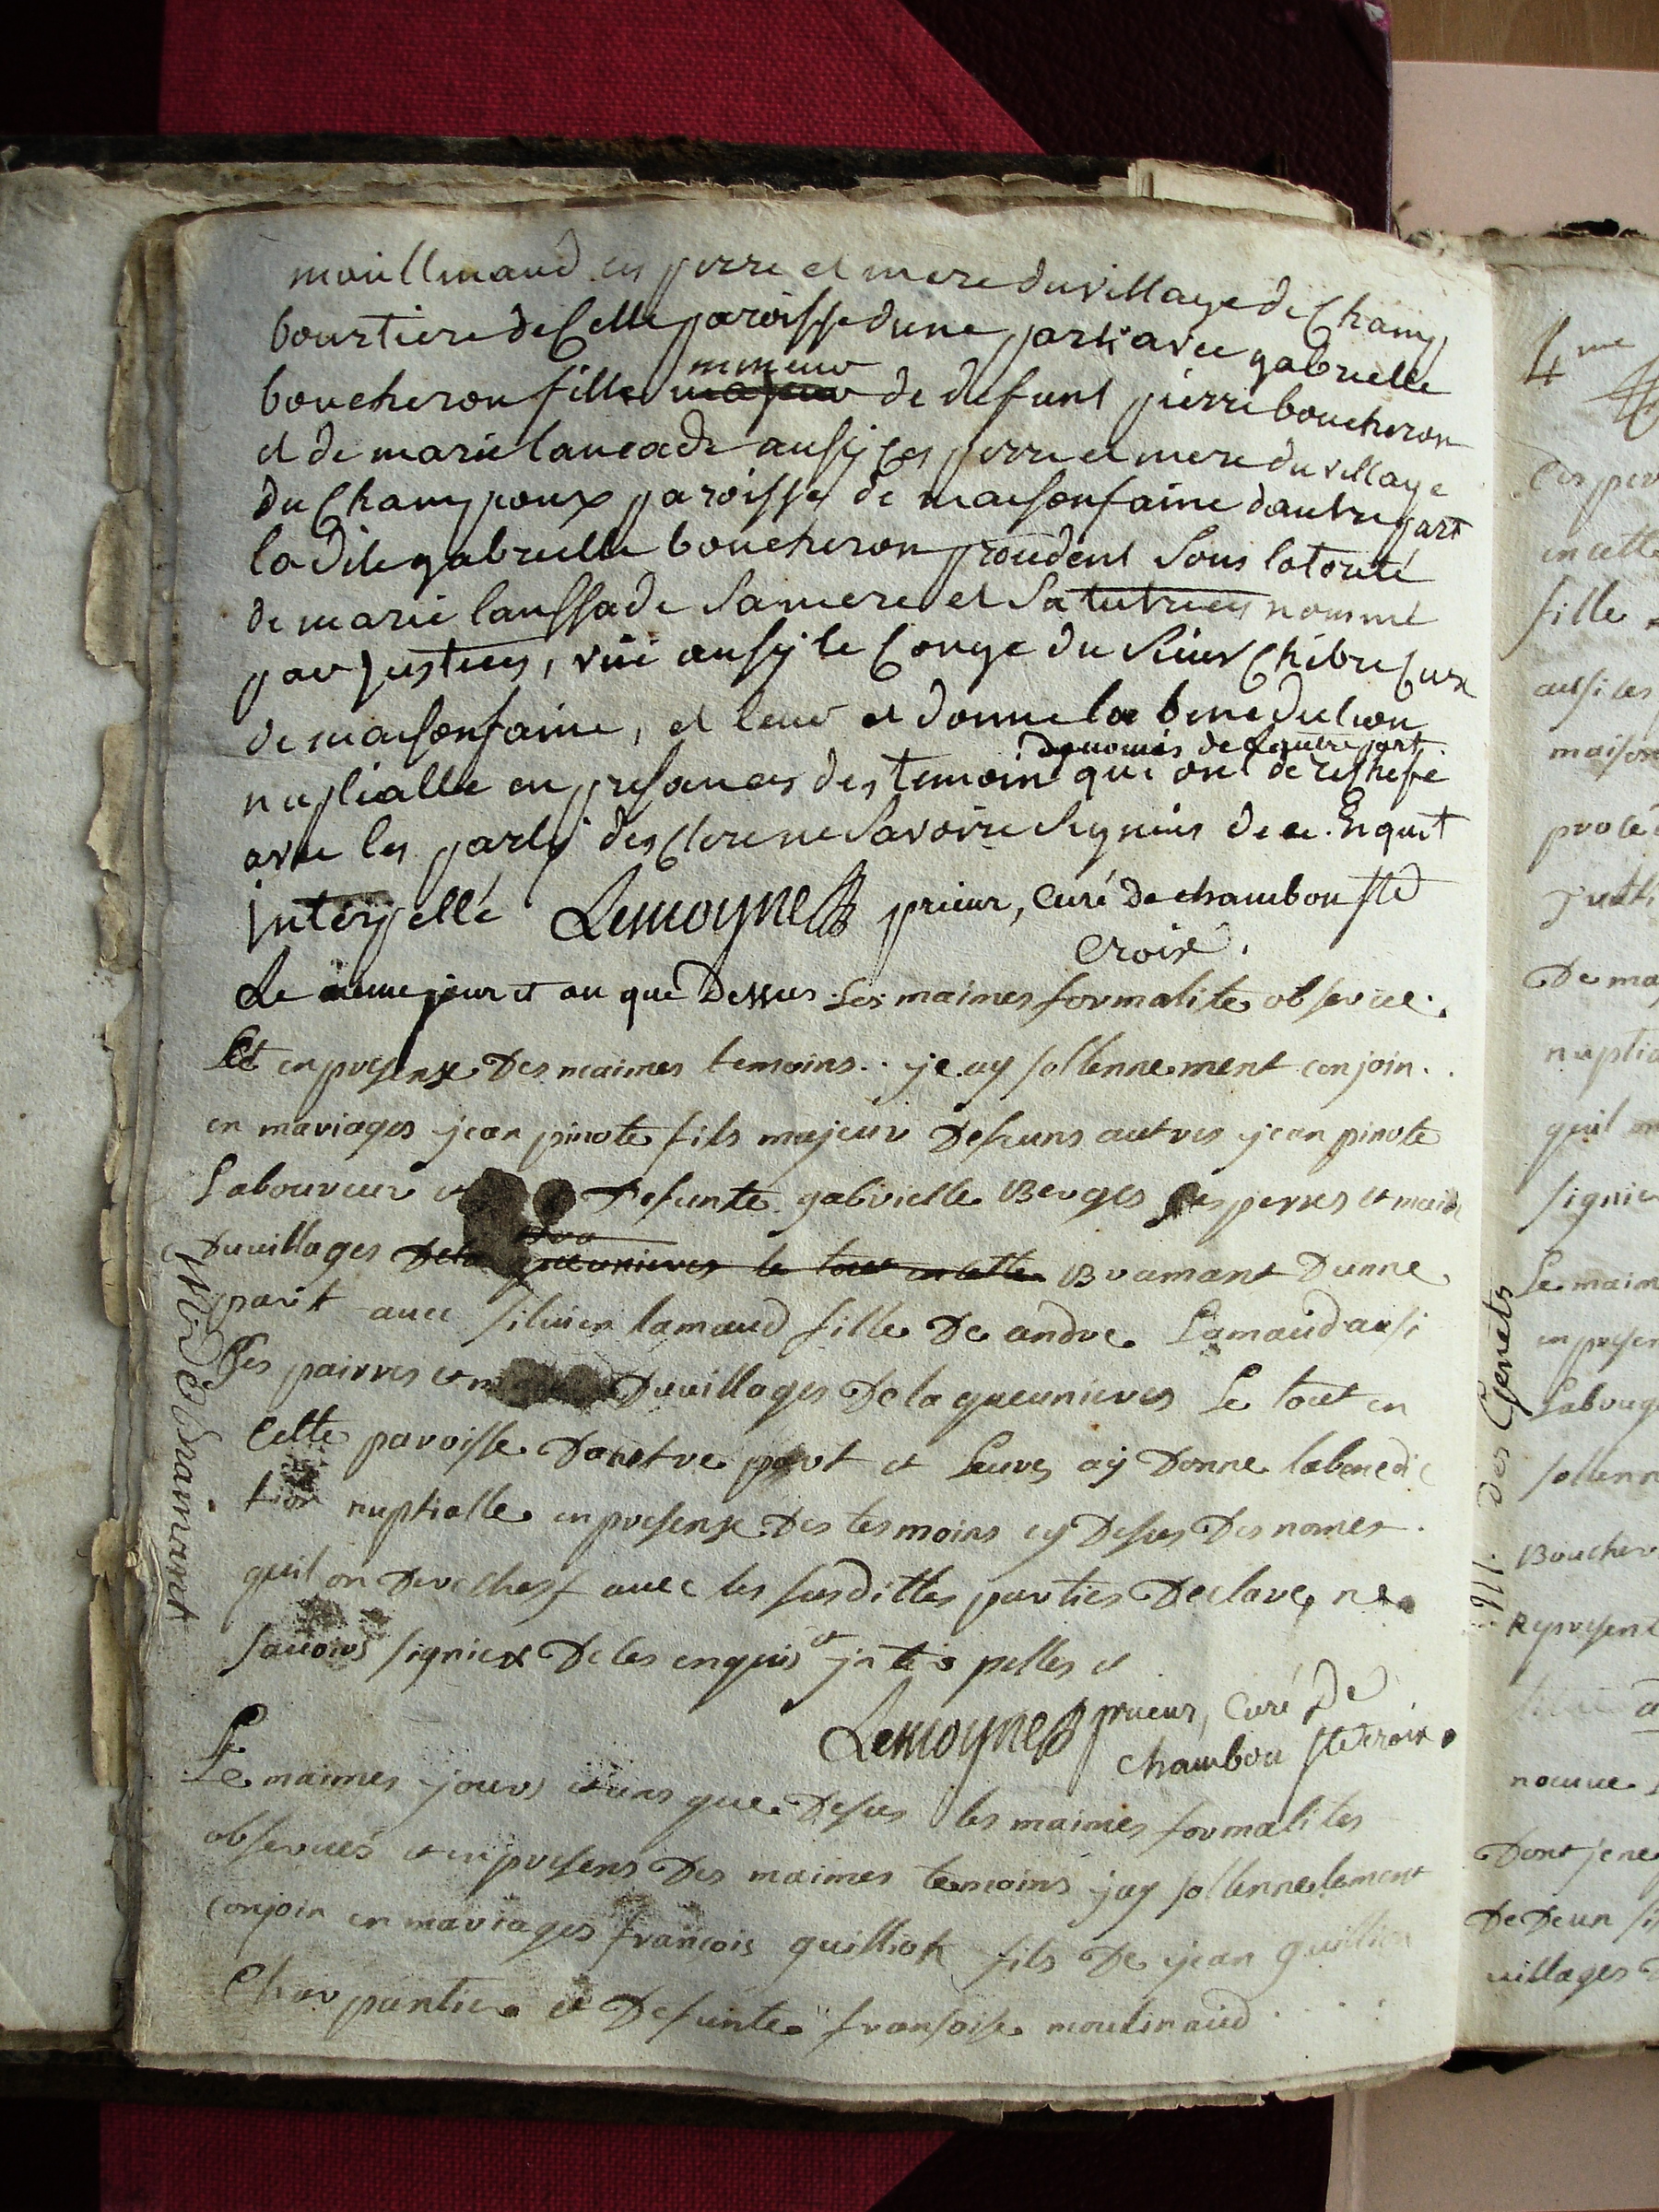 moullinaud ces perre et mere du village de Champ
bourtiere de Cette paroisse dune part avec gabrielle
mineur
boucheron fille majeur de defunt pierre boucheron
et de marie lancade ausy ces perre et mere du village
du Champoux paroisse de maisonfaine dautre part
la dite gabrielle boucheron prosedent Sous latorité
de marie laussade Samere et Satutrices nommé
par justices, vüe ausy le Conge du Sieur Chibre Cure
de maisonfaine, et leur et donne la benediction
denomés de lautre part
nuptialle en presances des temoin qui ont derechefe
avec les party desclere ne Savoire Signies de ce Enquit
jnterpellé Lemoyne prieur, curé de chambon ste
croix.
Le meme jour et an que Dessus Les maimes formalite observee
Et en presense Des maimes temoins je ay sollennement conjoin
en mariages jean pinote fils majeur Defuns autres jean pinote
Laboureur et Defunte gabrielle Berges Ses perres et mair
Du villages Dela gueunieres le tout en cette Bramant Dunne
part avec silvien lamaud fille De andre Lamaud ausi
Ses pairres et m Du villages De la gueunieres Le tout en
Cette paroisse Dauttre part et Leures ay Donne labenedic
tion nuptialle en presense Des tesmoins cy Desus Des nomes
quil on Derechesf avec les susdittes parties Declare, ne
savoirs signiex De les enquis et jnterpelles et
Lemoyne prieur, Curé De
chambon ste croix.
Le maimes jours et ans que Desus les maimes formalites
observées et en presens Des maimes temoins jay sollennelement
conjoin en mariages françois quilliot fils De jean quilliot
Charpantier et Defunte fransoise moulinaud
M. de Bramant
M. des Genets
4me
ces per
en cette
fille
ausi ces
maison
procé
De ma
nuptia
quil on
signie
Le maim
en presen
Laboug
sollenn
Boucher
Represent
nomme
Dont je ne
De Deun
villages